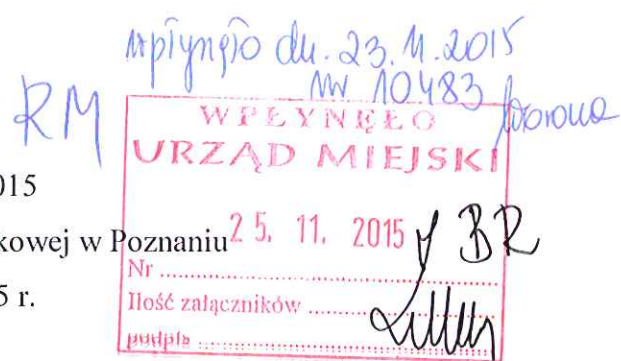 wpłynęło dn. 23.11.2015
nr 10483
RM
WPŁYNĘŁO
URZĄD MIEJSKI
015
kowej w Poznaniu
25. 11. 2015
BR
5 r.
Nr ..........
Ilość załączników ..........
podpis ..........